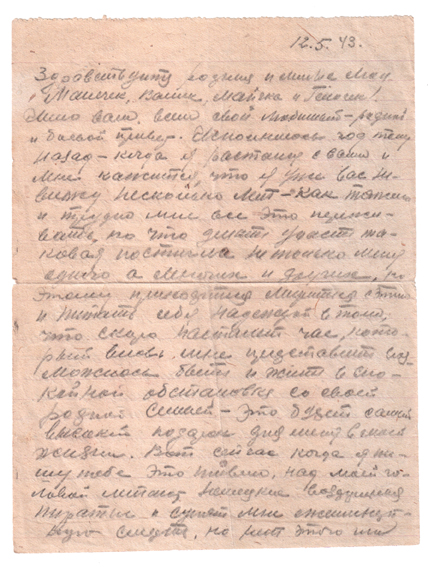 12.5.43.
Здравствуйте родния и милые мои
Манечка, Валик, Майечка и Геночка!
Шлю вам, всем свой любящий - родной
и боевой привет. Исполнилось год тому
назад - когда я растался с вами и
мне кажется, что я уже вас не
вижу несколько лет - как тяжело
и трудно мне все это пережи-
вать, но что делать участь та-
ковая постигла не только меня
одного а многих и других, по
этому приходится мириться с этим
и питать себя надеждой в том,
что скоро настанит час, кото-
рый вновь мне представит воз-
можность быть и жить в спо-
койной обстановке со своей
родной семьей - это будет самый
высокий подарок для меня в моей
жизни. Вот сейчас когда я пи-
шу тебе это письмо, над моей го-
ловой летают немецкие воздушные
пираты и сулят мне ежеминут-
ную смерть, но этого